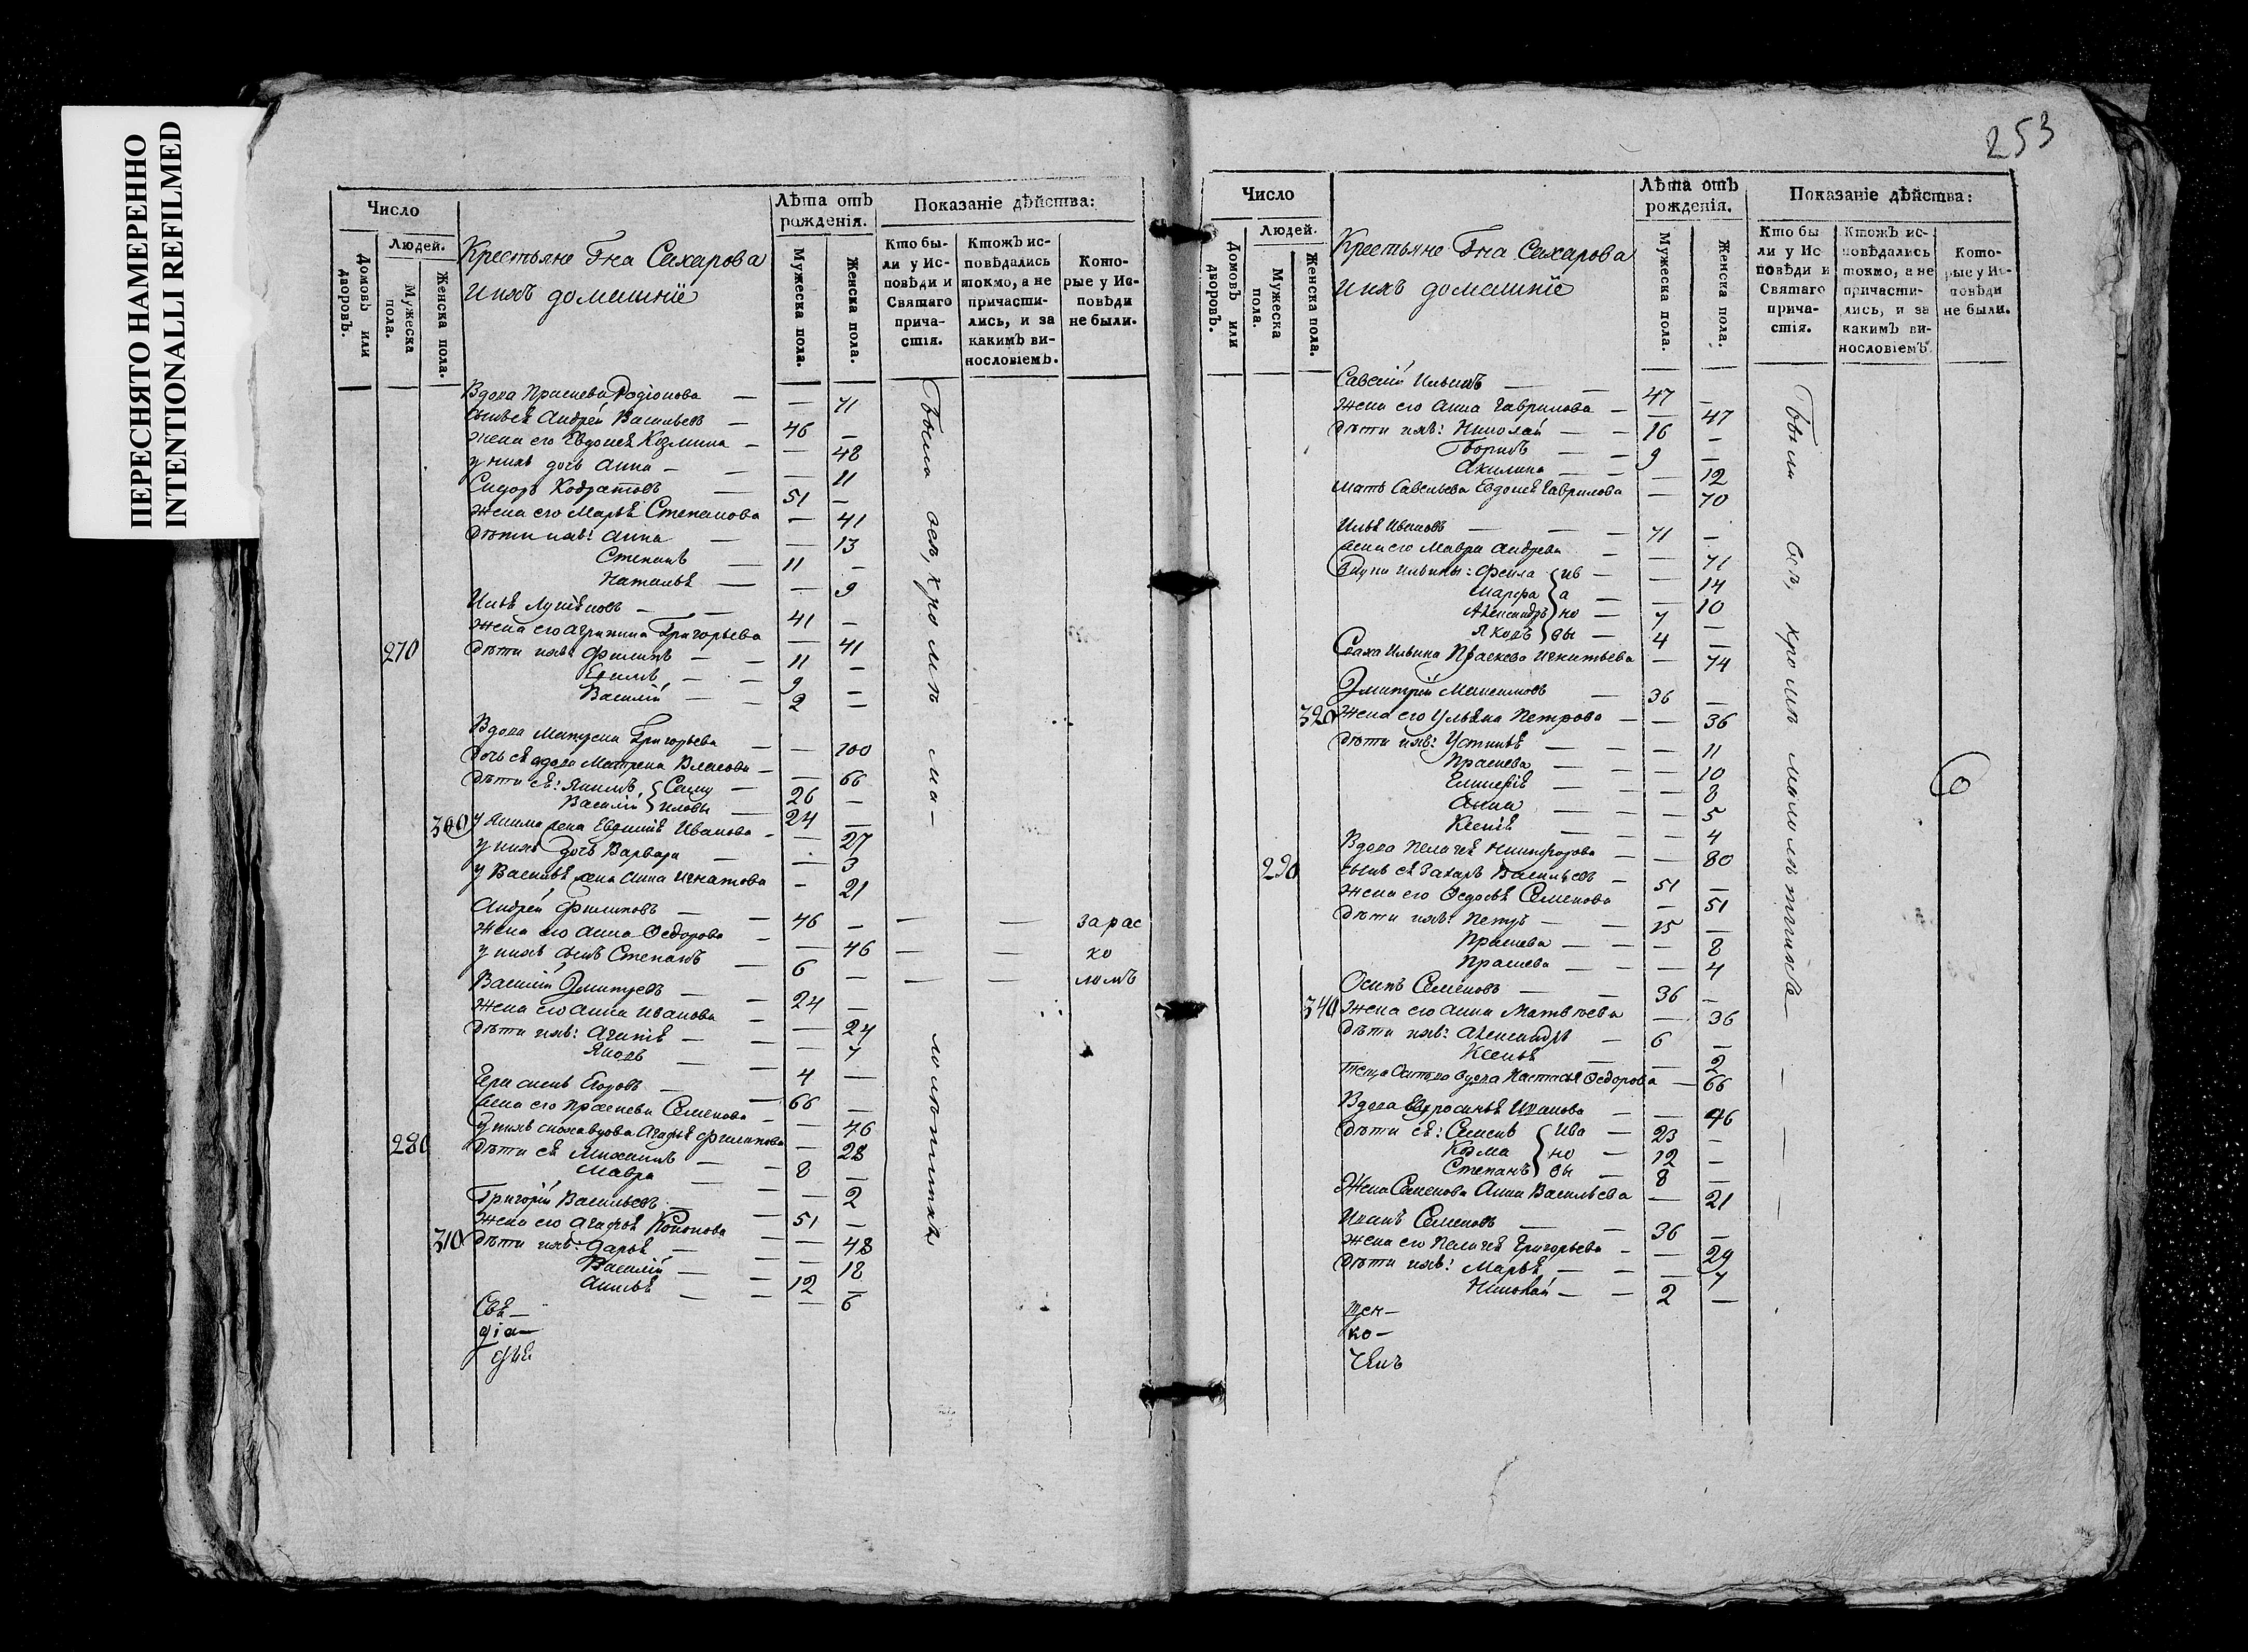 ПЕРЕСНЯТО НАМЕРЕННО
INTENTIONALLI REFILMED
Число
Людей.
Домовъ или дворовъ.
Мужеска пола.
Женска пола.
Крестьяне Гна Сахарова
ихъ домашніе
Лѣта отъ рожденія.
Мужеска пола.
Женска пола.
Показаніе дѣйства:
Кто бы-
ли у Ис-
повѣди и
Святаго
прича-
стія.
Ктожъ ис-
повѣдались
токмо, а не
причасти-
лись, и за
какимъ ви-
нословіемъ.
Кото-
рые у Ис-
повѣди
не были.
Вдова Праскева Родіонова — — 71
Сынъ еѣ Андрей Васильевъ — 46 —
Жена его Евдокеѣ Козмина — — 48
у нихъ дочь Анна — — — 11
Сидоръ Кодратовъ — 51 —
Жена его Марьѣ Степанова — 41
Дѣти ихъ: Анна — — 13
Степанъ — 11 —
Натальѣ — — 9
Ильѣ — — 41 —
Жена его Агрипина Григорьева — 41
270 Дѣти ихъ: Филипъ — — 11 —
Ефимъ — — 9 —
Василій — — 2 —
Вдова Григорьева — — 100
Дочь еѣ вдова Матрена Власова — — 66
Дѣти еѣ: Якимъ — 26 —
Василій — 24 —
300 у Акима жена Иванова — — 27
у нихъ дочь Варвара — — 3
у Васильѣ жена Анна Игнатова — 21
Андрей Филиповъ — — 46 — — — за рас
Жена его Анна Ѳедорова — — 46 — — ко
у нихъ сынъ Степанъ — 6 — — — ломъ
Василій Дмитревъ — — 24 —
Жена его Анна Иванова — — 24
Дѣти ихъ: — — 7
Яковъ — — 4 —
Егоровъ — — 66 —
Жена его Праскева Семенова — — 46
280 у нихъ сноха вдова Агафьѣ Филипова — 28
Дѣти еѣ Михаилъ — — 8 —
Мавра — — — 2
Григорій Васильевъ — — 51 —
Жена его Агафьѣ Кононова — — 48
310 Дѣти ихъ: Дарьѣ — — — 18
Василій — — 12 —
— — — 6
Были всѣ, кромѣ ма-
лолѣтнихъ
Свѣ—
діа—
253
Число
Людей.
Домовъ или дворовъ.
Мужеска пола.
Женска пола.
Крестьяне Гна Сахарова
ихъ домашніе
Лѣта отъ рожденія.
Мужеска пола.
Женска пола.
Показаніе дѣйства:
Кто бы
ли у Ис
повѣди и
Святаго
прича-
стія.
Ктожъ ис-
повѣдались
токмо, а не
причасти-
лись, и за
какимъ ви-
нословіемъ.
Кото-
рые у Ис-
повѣди
не были.
Савелій Ильинъ — — 47 —
Жена его Анна Гаврилова — — 47
Дѣти ихъ: Николай — — 16 —
Борисъ — — 9 —
Акилина — — — 12
Мать Савельева Евдокеѣ Гаврилова — 70
Ильѣ Ивановъ — — 71 —
Жена его Мавра Андрева — — 71
Внуки Ильины: Ѳекла — — 14
Марфа — — 10
Александръ — 7 —
Яковъ — 4 —
Сваха Ильина Праскева Игнатьева — 74
Дмитрій Максимовъ — 36 —
320 Жена его Ульяна Петрова — — 36
Дѣти ихъ: Устиньѣ — — — 11
Праскева — — — 10
— — — 8
Анна — — — 5
Ксеніѣ — — — 4
Вдова Пелагеѣ Никифорова — — 80
290 Сынъ еѣ Захаръ Васильевъ — 51 —
Жена его Ѳедосьѣ Семенова — 51
Дѣти ихъ: Петръ — — 15 —
Праскева — — — 8
Праскева — — — 4
Осипъ Семеновъ — — 36 —
340 Жена его Анна Матвѣева — 36
Дѣти ихъ: Александръ — 6 —
Ксеньѣ — — 2
Теща вдова Настасьѣ Ѳедорова — 66
Вдова Ефросиньѣ Иванова — — 46
Дѣти еѣ: Семенъ { Ива — 23 —
Козма { но — 12 —
Степанъ { вы — 8 —
Жена Семенова Анна Васильева — 21
Иванъ Семеновъ — — 36 —
Жена его Пелагеѣ Григорьева — — 29
Дѣти ихъ: Марьѣ — — — 7
Николай — — 2 —
Были всѣ, кромѣ малолѣтнихъ —
щен—
ко—